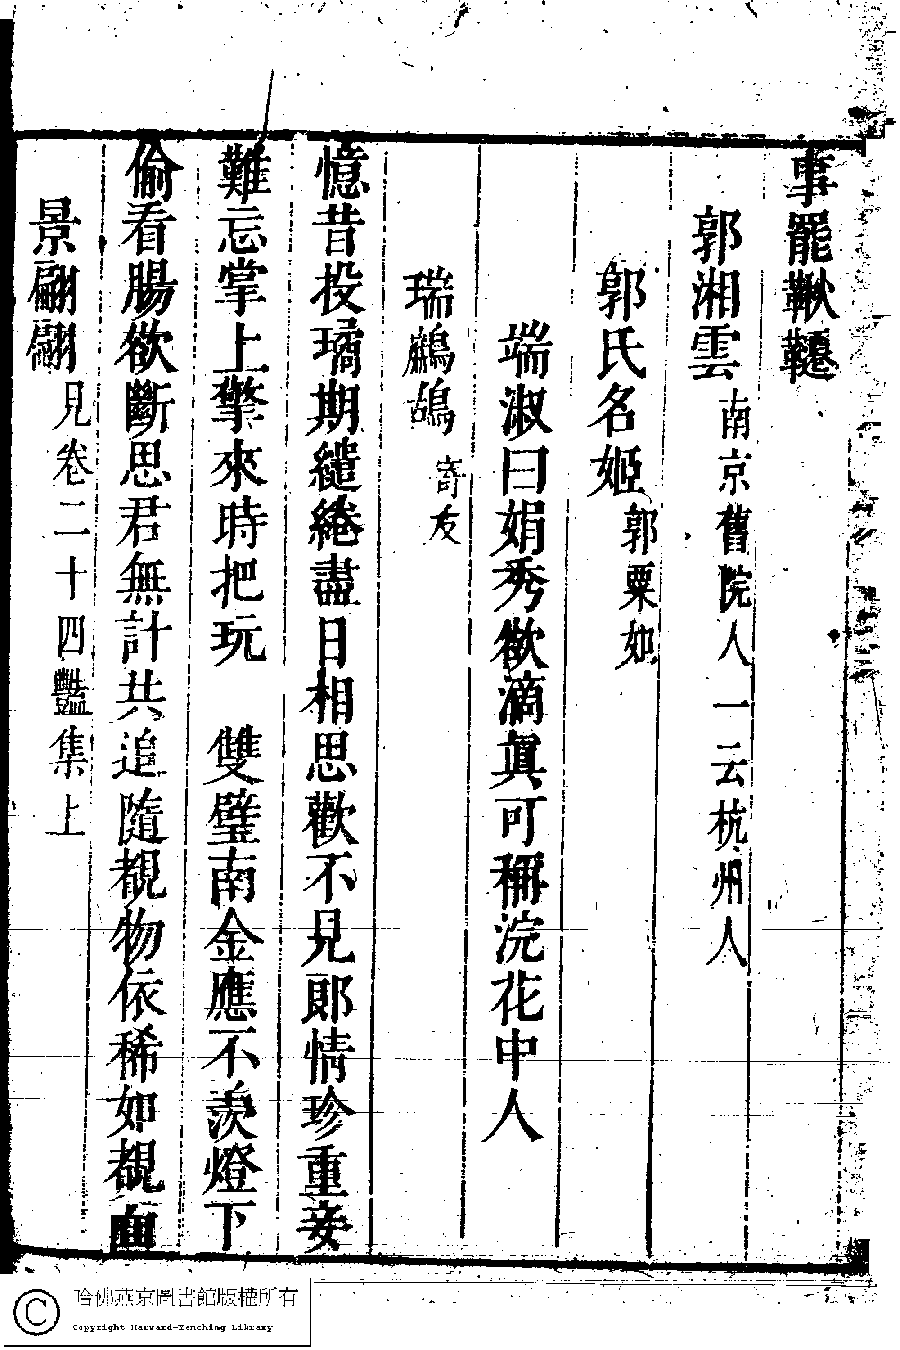 事罷鞦韆
郭湘雲 南京舊院人一云杭州人
郭氏名姬 郭粟如
端淑曰娟秀欲滴眞可稱浣花中人
瑞鷓鴣 寄友
憶昔投璚期繾綣盡日相思歡不見郎情珍重妾
難忘掌上擎來時把玩 雙璧南金應不羨燈下
偷看腸欲斷思君無計共追隨覩物依稀如覩面
景翩翩 見卷二十四豔集上
哈佛燕京圖書館版權所有
Copyright Harvard-Yenching Library